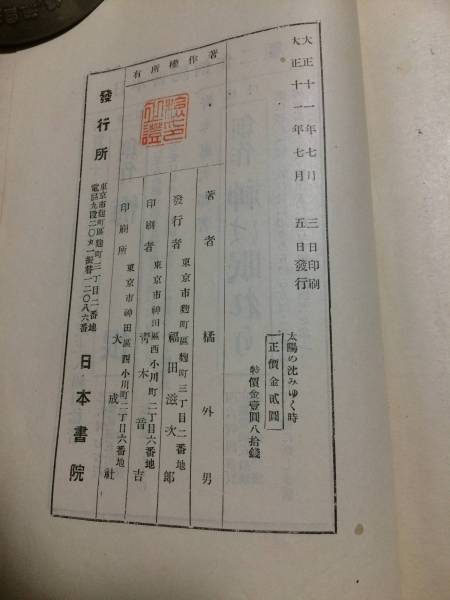 大正十一年七月三日印刷
大正十一年七月五日發行
太陽の沈みゆく時
正價金貳圓
特價金壹圓八拾錢
著作權所有
著者 橘外男
東京市麹町區麹町三丁目二番地
發行者 福田滋次郎
東京市神田區西小川町二丁目六番地
印刷者 青木音吉
東京市神田區西小川町二丁目六番地
印刷所 大成社
發行所
東京市麹町區麹町三丁目二番地
日本書院